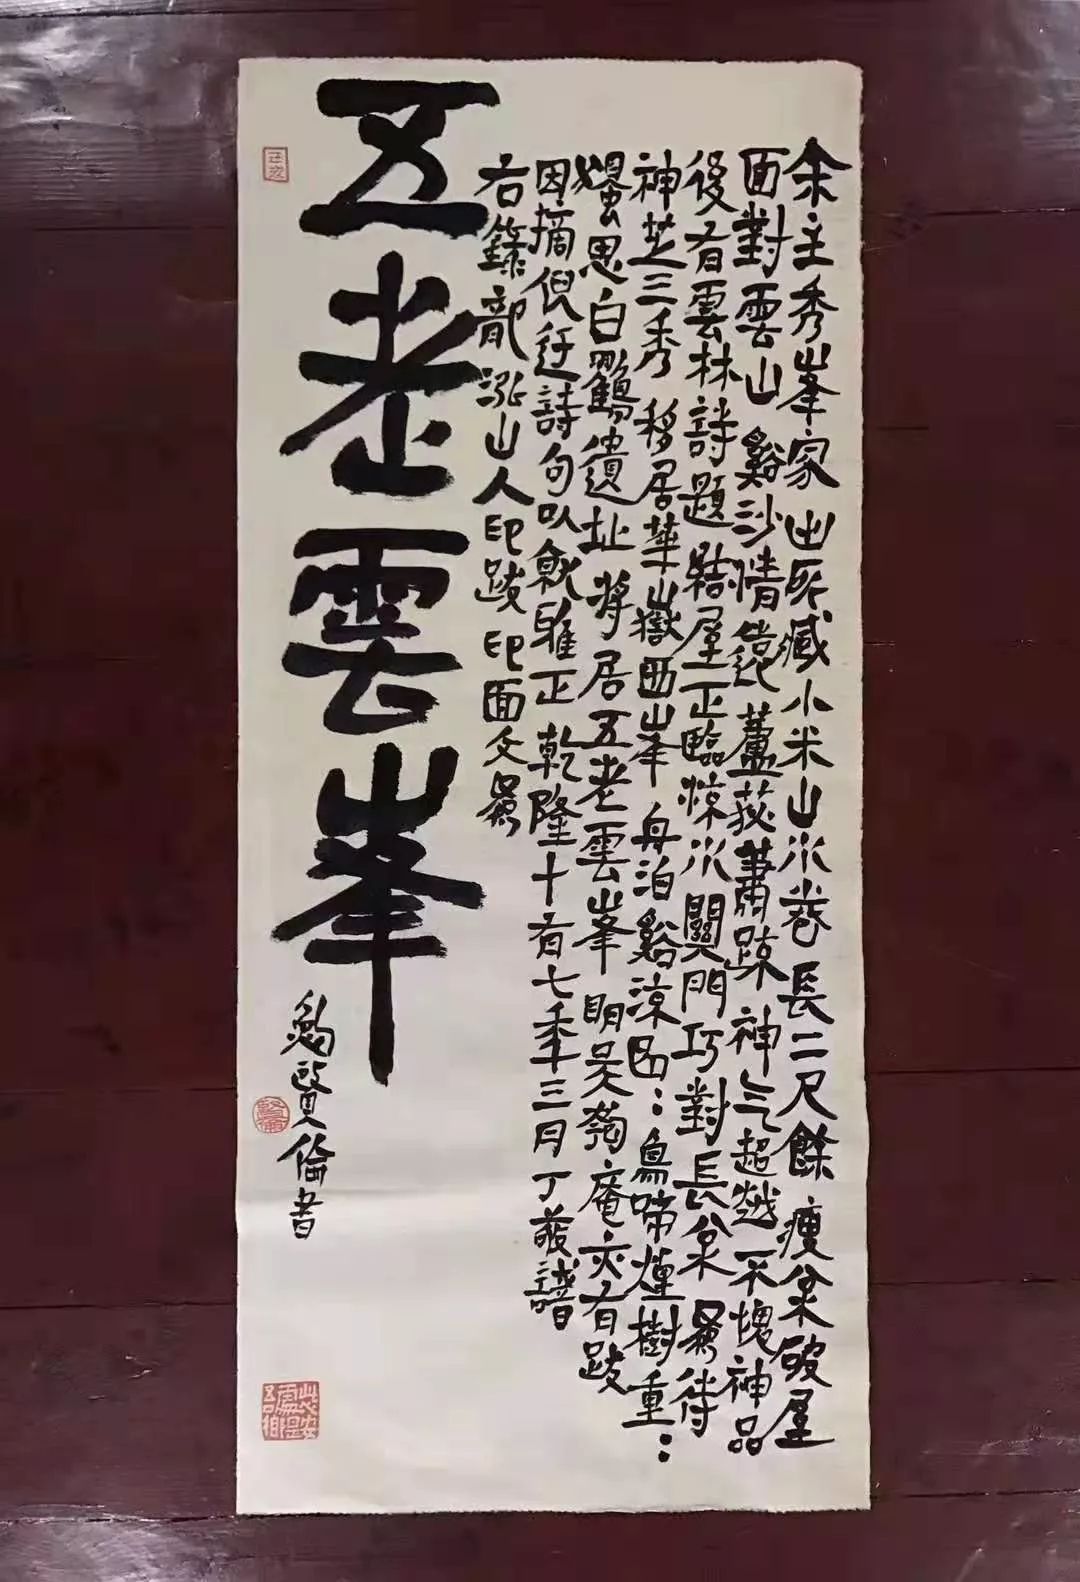 余主秀峯家出所藏小米山水卷長二尺餘瘦枀破屋
面對雲山谿沙情遠蘆荻蕭疎神气超越不愧神品
後有雲林詩題結屋正臨流水開門巧對長枀為待
神芝三秀移居華嶽西峯舟泊谿流曲:鳥啼煙樹重:
思白鶴遺址將居五老雲峯明吳匏庵亦有跋
因摘倪迂詩句以就雅正乾隆十有七年三月丁敬識
右錄龍泓山人印跋印面文為
五老雲峯
賢倫書